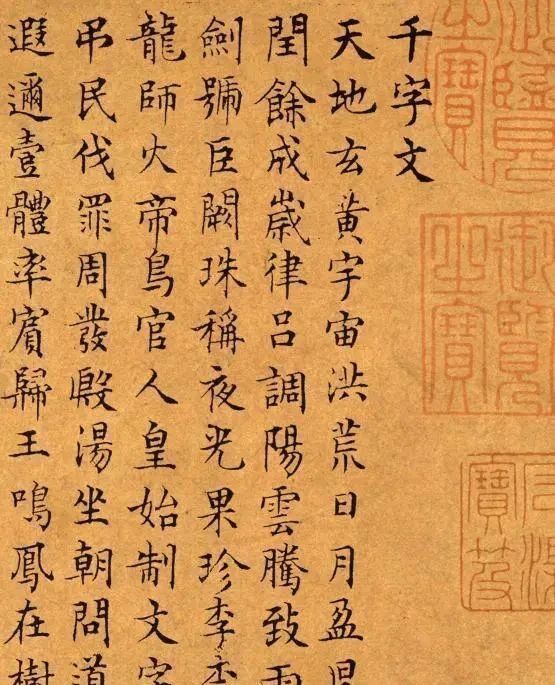 御覽之寶
千字文
天地玄黃宇宙洪荒日月盈昃
閏餘成歲律呂調陽雲騰致雨
劍號巨闕珠稱夜光果珍李柰
龍師火帝鳥官人皇始制文字
吊民伐罪周發殷湯坐朝問道
遐邇壹體率賓歸王鳴鳳在樹